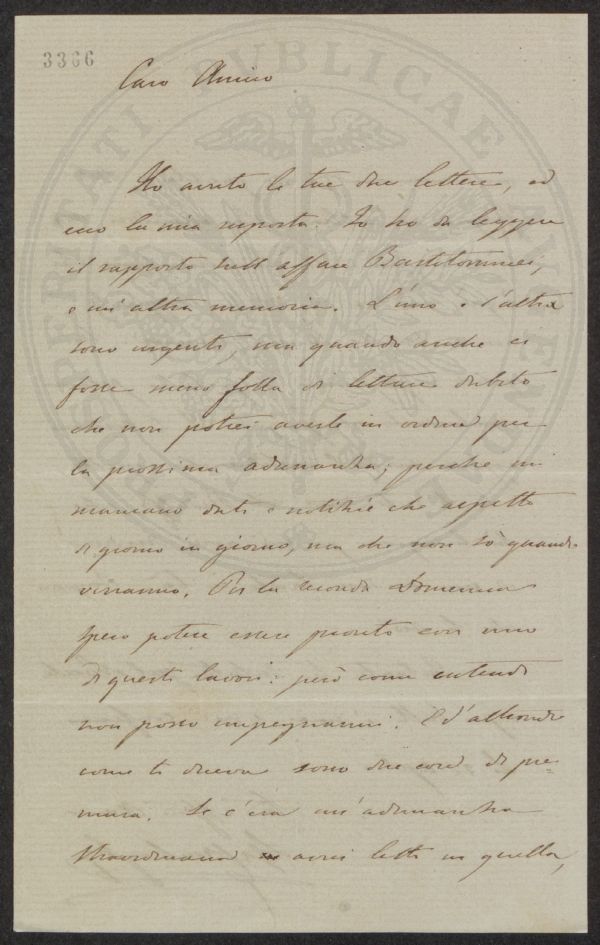 3366
Caro Amico
Ho avuto le tue due lettere, ed
ecco la mia risposta. Io ho da leggere
il rapporto sull'affare Bartolommei,
e un'altra memoria. L'uno e l'altra
sono urgenti, ma quando anche ci
fosse meno folla di letture dubito
che non potrei averle in ordine per
la prossima adunanza; perche mi
mancano dati e notizie che aspetto
di giorno in giorno, ma che non sò quando
verranno. Per la seconda Domenica
spero potere essere pronto con uno
di questi lavori: però come intendi
non posso impegnarmi. E d'altronde
come ti diceva sono due cose di pre-
mura. Se c'era un'adunanza
straordinaria avrei letto in quella,